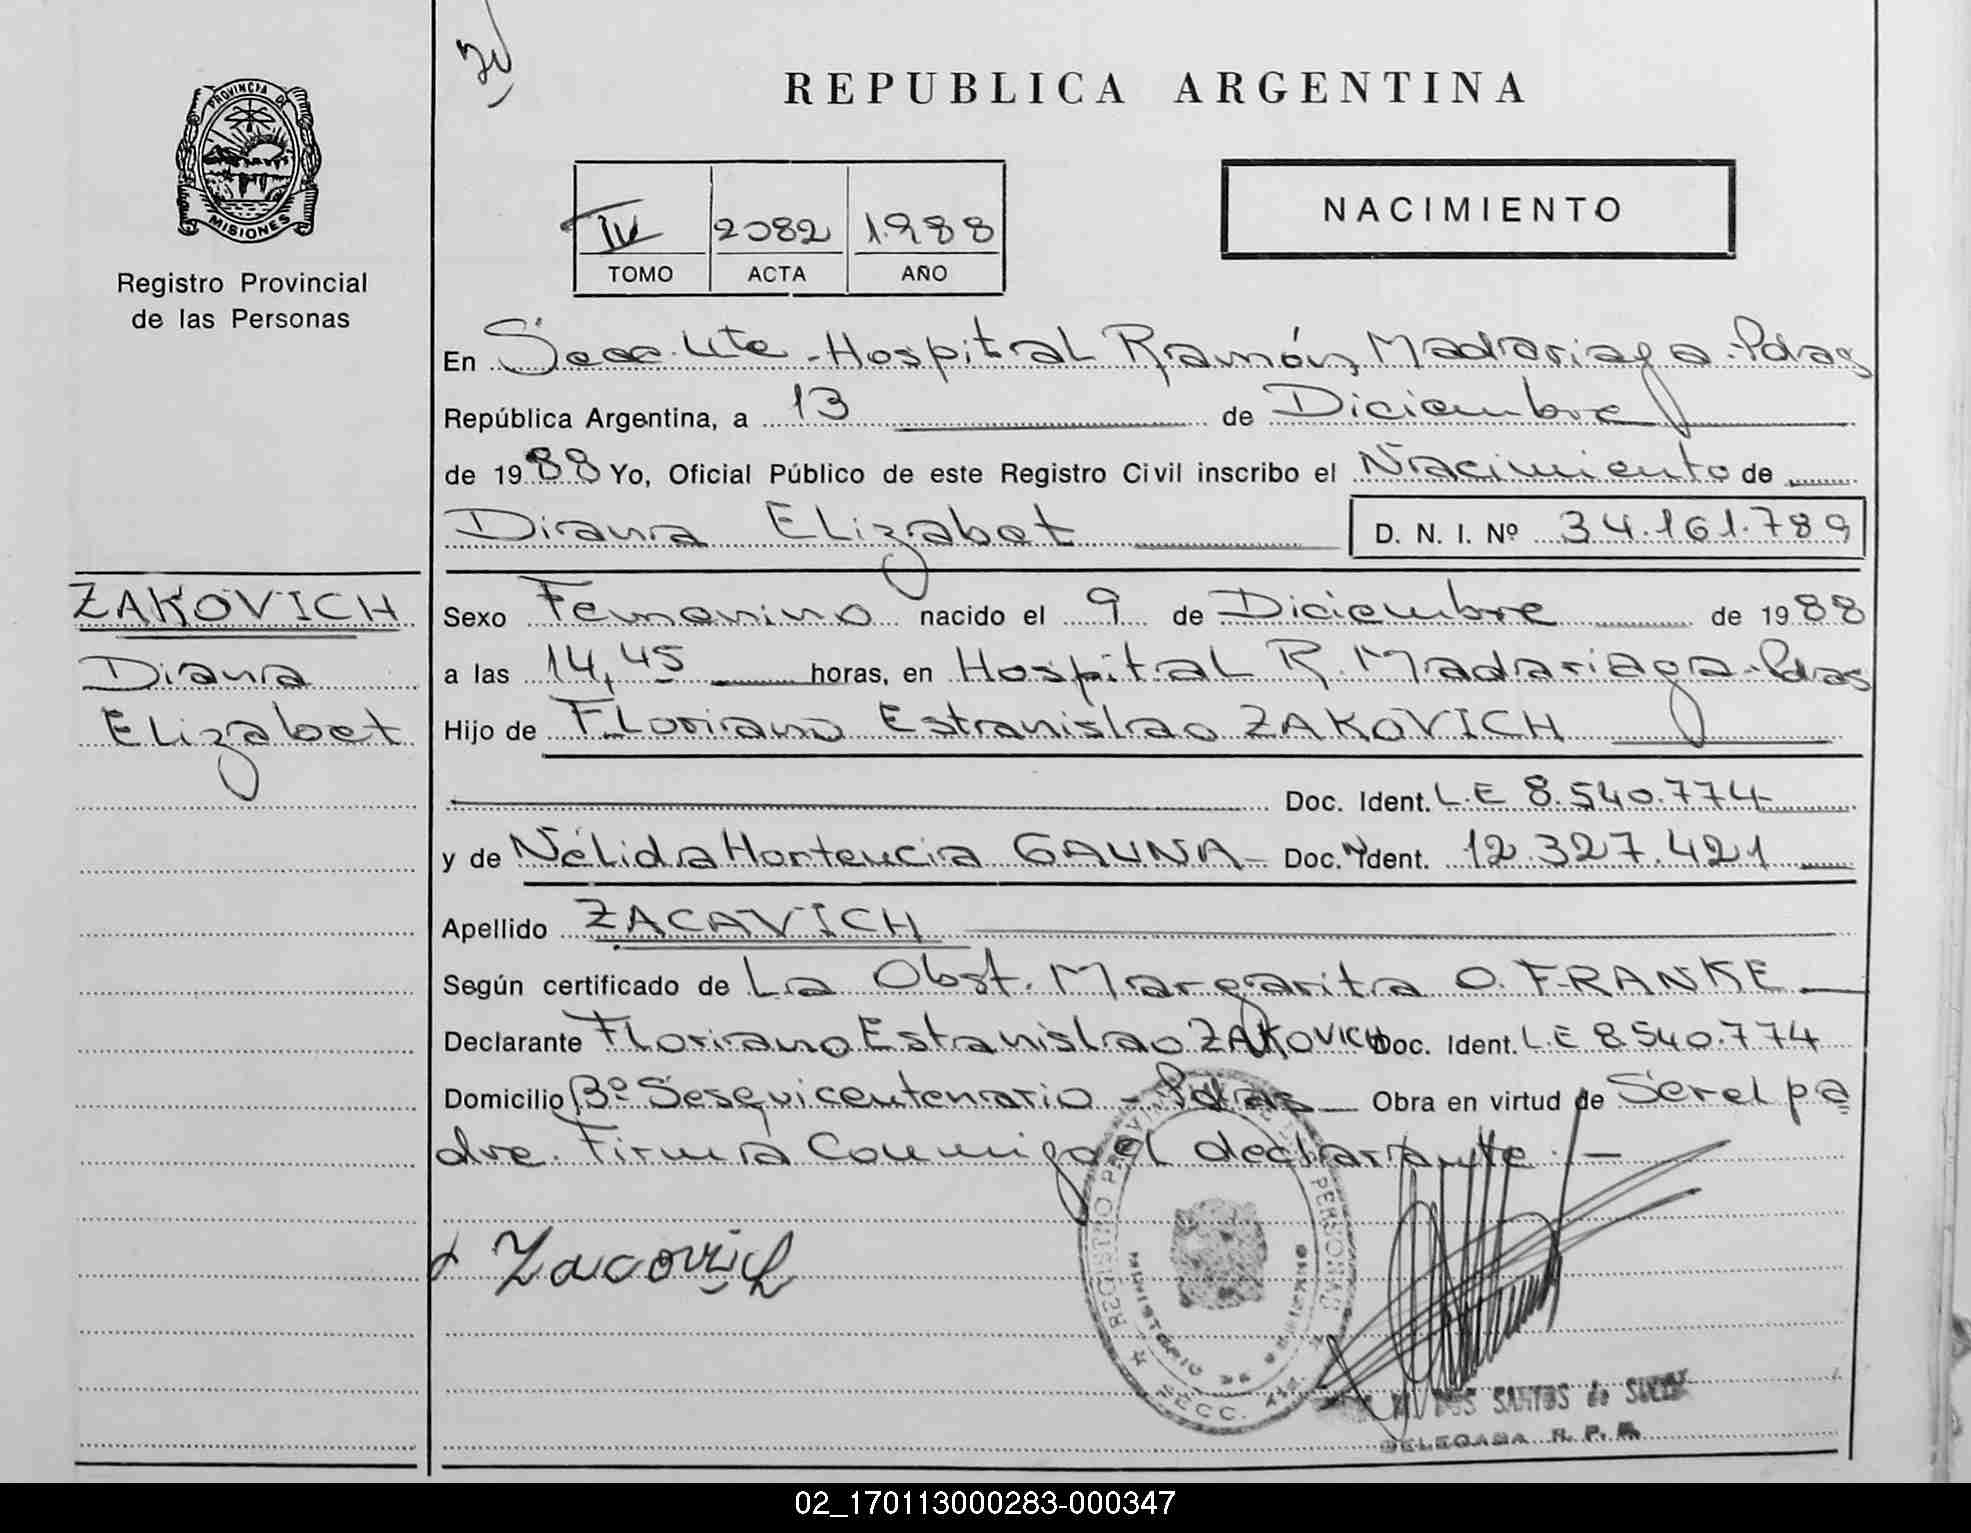 REPUBLICA ARGENTINA
PROVINCIA DE
MISIONES
Registro Provincial
de las Personas
IV 2082 1.988
TOMO ACTA AÑO
NACIMIENTO
En Secc. 4te - Hospital Ramón Madariaga - Pdas
República Argentina, a 13 de Diciembre
de 1988 Yo, Oficial Público de este Registro Civil inscribo el Nacimiento de
Diana Elizabet
D. N. I. Nº 34.161.789
ZAKOVICH
Diana
Elizabet
Sexo Femenino nacido el 9 de Diciembre de 1988
a las 14,45 horas, en Hospital R. Madariaga - Pdas
Hijo de Floriano Estanislao ZAKOVICH
Doc. Ident. L.E 8.540.774
y de Nélida Hortencia GAUNA - Doc. Ident. 12.327.421
Apellido ZACAVICH
Según certificado de La Obst. Margarita O. FRANKE
Declarante Floriano Estanislao ZAKOVICH Doc. Ident. L.E 8.540.774
Domicilio Bº Sesquicentenario - Pdas Obra en virtud de Ser el pa
dre. Firma Conmigo el declarante. -
Zacovich
REGISTRO PROVINCIAL DE LAS PERSONAS
MINISTERIO DE GOBIERNO
SECC. 4ta
DOS SANTOS de
DELEGADA R. P. P.
02_170113000283-000347